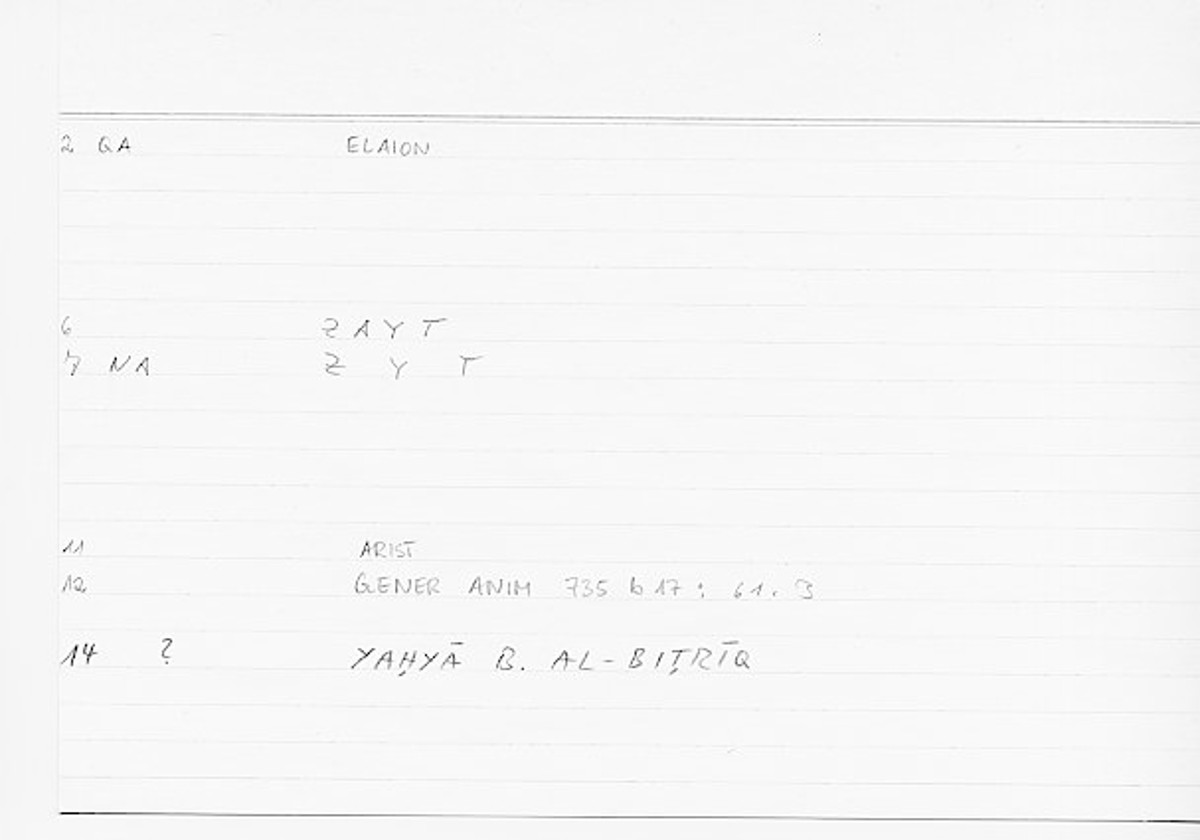 2 QA ELAION
6 ZAYT
7 NA Z Y T
11 ARIST
12 GENER ANIM 735 b 17 : 61.3
14 ? YAḤYĀ B. AL-BIṬRĪQ